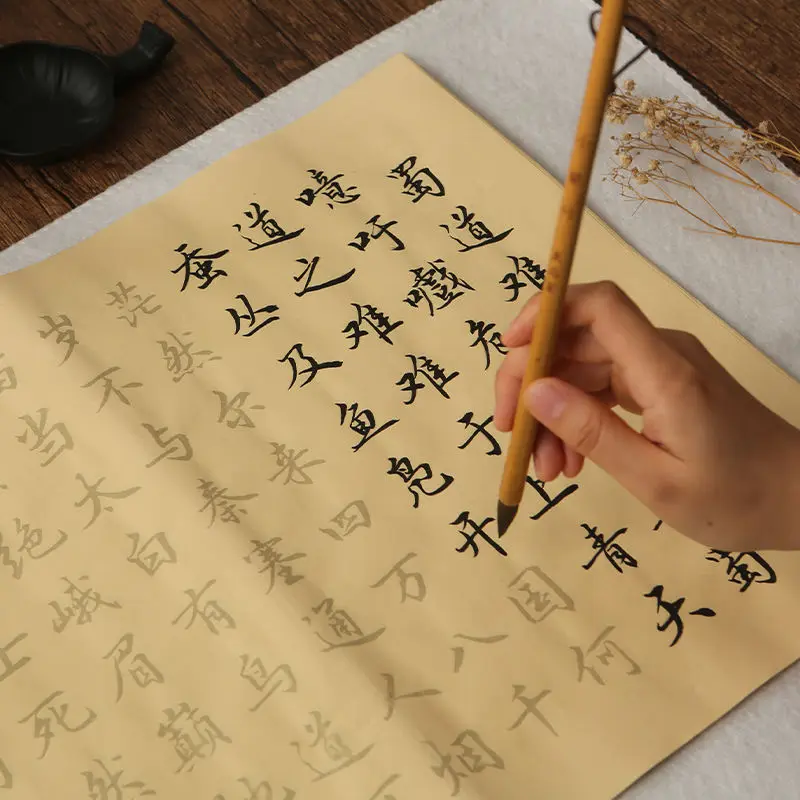 蜀道难
噫吁嚱危蜀
道之难难于上青天
蚕丛及鱼凫开国何
茫然尔来四万八千
岁不与秦塞通人烟
当太白有鸟道
绝峨眉巅地
士死然